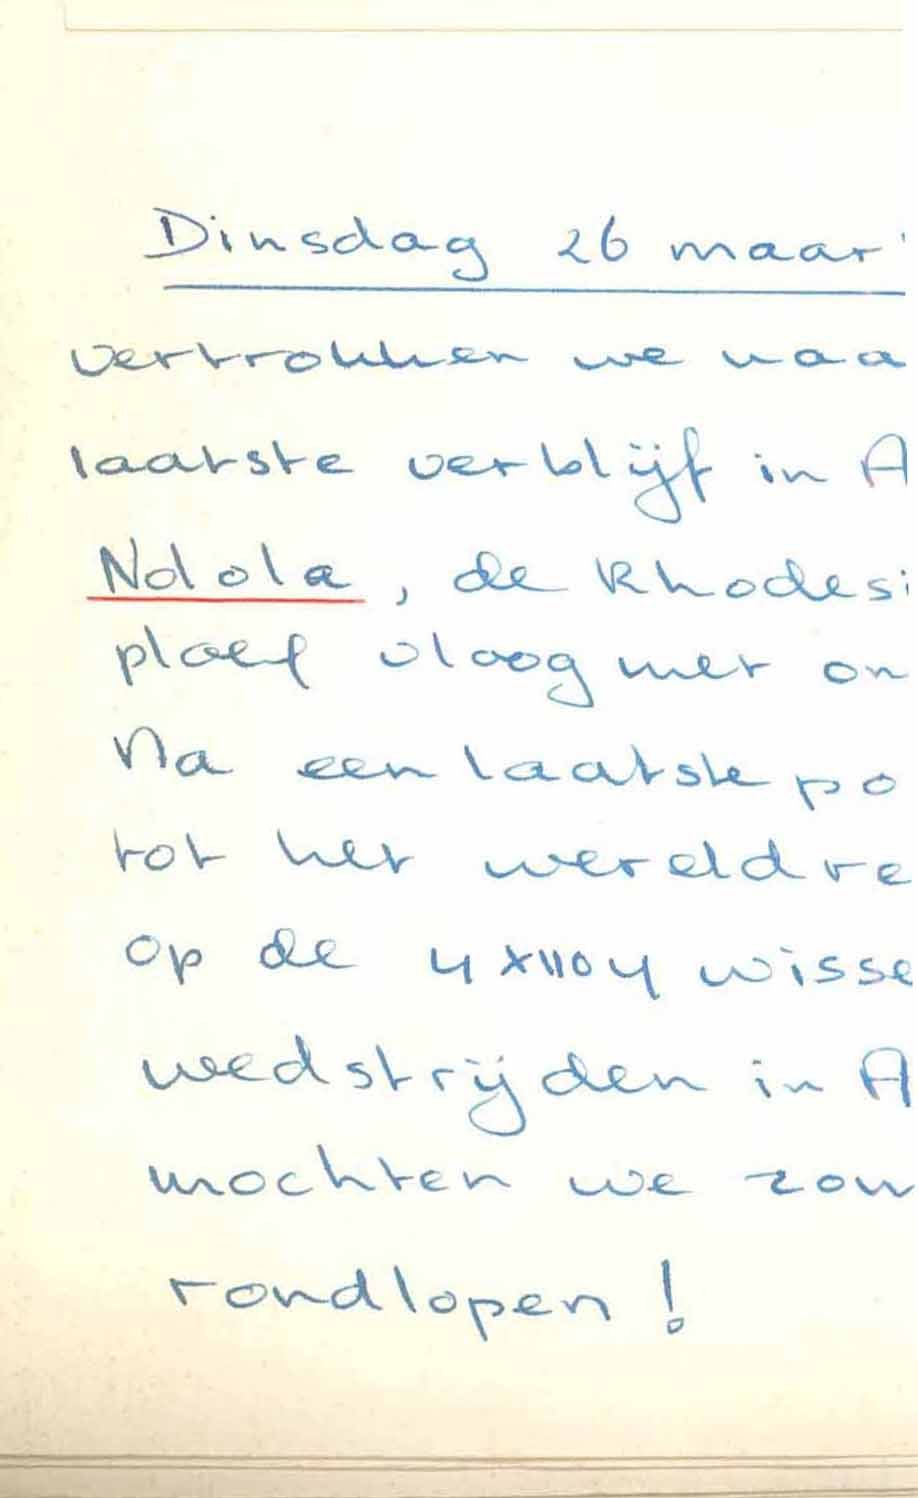 Dinsdag 26 maar
vertrokken we naa
laatste verblijf in A
Ndola, de Rhodesi
ploeg vloog met on
Na een laatste po
tot het wereldre
op de 4 x 110 y wisse
wedstrijden in A
mochten we zon
rondlopen!